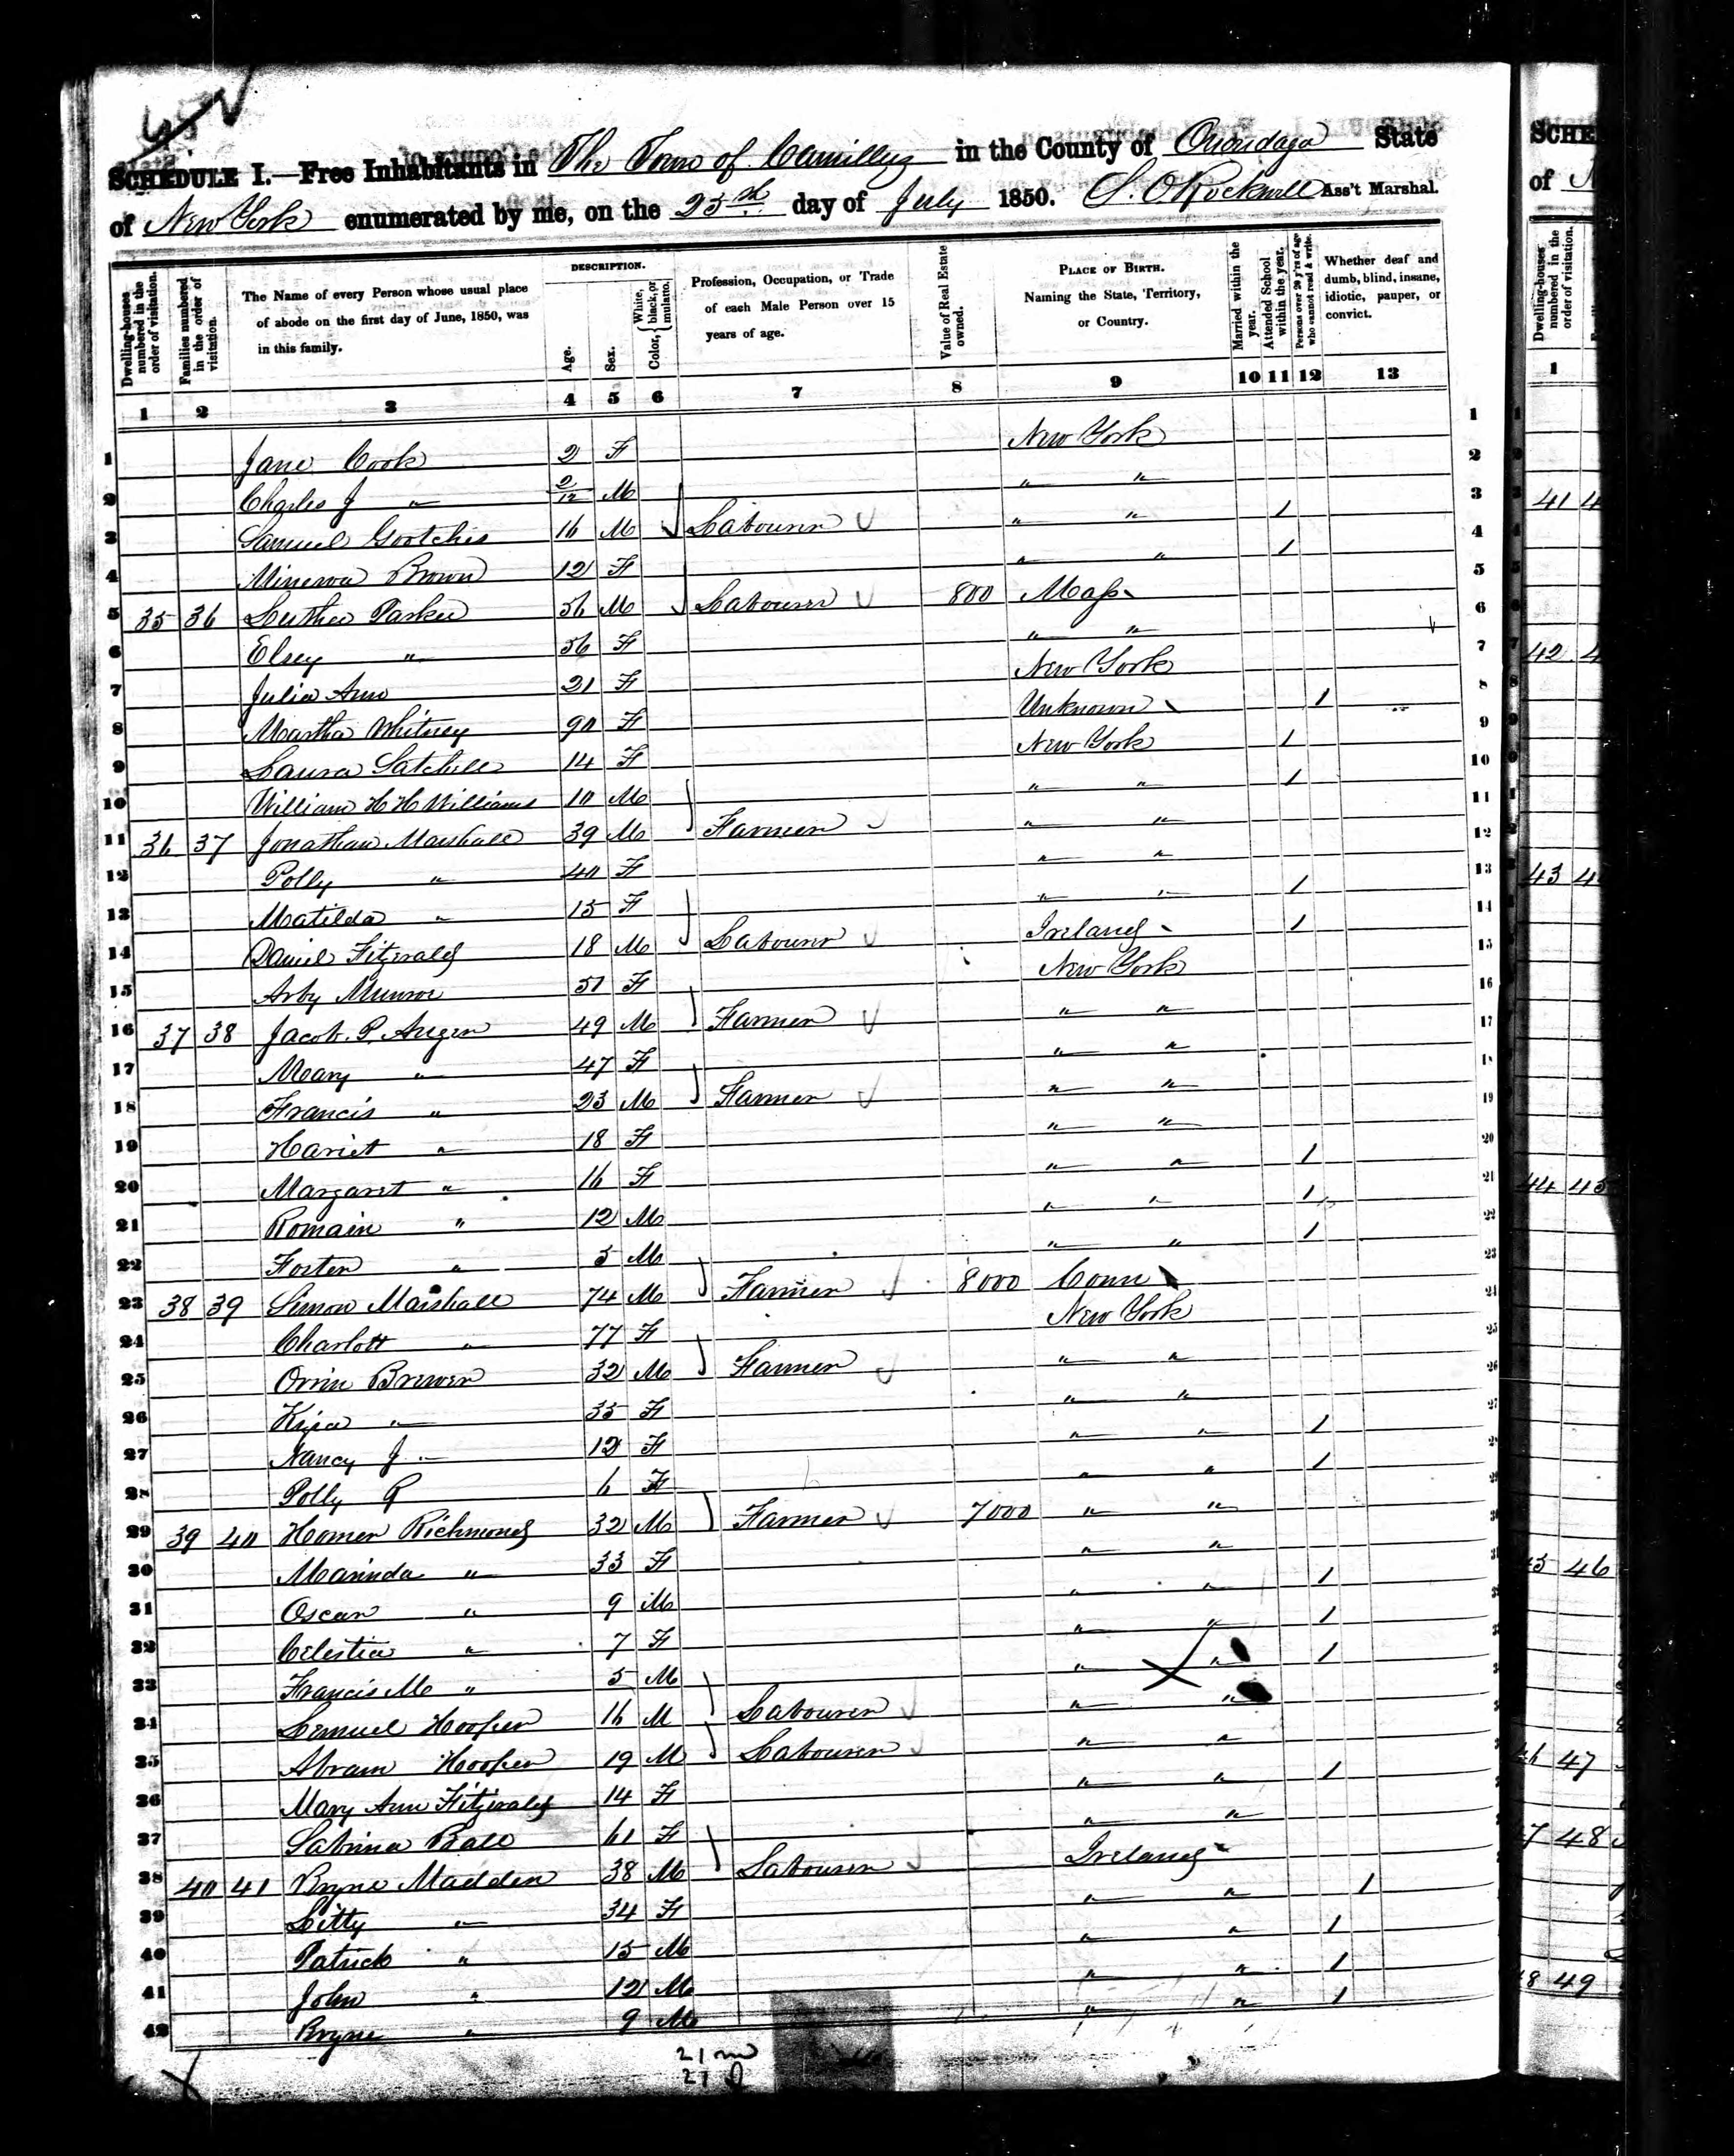 SCHEDULE I.—Free Inhabitants in The Town of Camillus in the County of Onondaga State
of New York enumerated by me, on the 25th day of July 1850. S. O Rockwell Ass't Marshal.
Dwelling-houses numbered in the order of visitation.
Families numbered in the order of visitation.
The Name of every Person whose usual place of abode on the first day of June, 1850, was in this family.
DESCRIPTION.
Age.
Sex.
Color, { White, black, or mulatto.
Profession, Occupation, or Trade of each Male Person over 15 years of age.
Value of Real Estate owned.
PLACE OF BIRTH. Naming the State, Territory, or Country.
Married within the year.
Attended School within the year.
Persons over 20 y'rs of age who cannot read & write.
Whether deaf and dumb, blind, insane, idiotic, pauper, or convict.
1 2 3 4 5 6 7 8 9 10 11 12 13
1 Jane Cook 2 F New York 1
2 Charles J " 2/12 M " " 2
3 Samuel 16 M Labourer " " 1 3
4 Minerva Brown 12 F " " 1 4
5 35 36 Luther Parker 56 M Labourer 800 Mass 5
6 Elsey " 56 F " " 6
7 Julia Ann 21 F New York 7
8 Martha Whitney 90 F Unknown 1 8
9 Laura Satchell 14 F New York 1 9
10 William H H Williams 10 M " " 1 10
11 36 37 Jonathan Marshall 39 M Farmer " " 11
12 Polly " 40 F " " 12
13 Matilda " 15 F " " 1 13
14 Daniel Fitzerald 18 M Labourer Ireland 1 14
15 Arby Munroe 51 F New York 15
16 37 38 Jacob P. Auger 49 M Farmer " " 16
17 Mary " 47 F " " 17
18 Francis " 23 M Farmer " " 18
19 Hariet " 18 F " " 19
20 Margaret " 16 F " " 1 20
21 Romain " 12 M " " 1 21
22 Foster " 5 M " " 1 22
23 38 39 Simon Marshall 74 M Farmer 8000 Conn 23
24 Charlott " 77 F New York 24
25 Orrin Brewer 32 M Farmer " " 25
26 " 35 F " " 26
27 Nancy J " 12 F " " 1 27
28 Polly 6 F " " 1 28
29 39 40 Homer Richmond 32 M Farmer 7000 " " 29
30 Marinda " 33 F " "
31 Oscar " 9 M " " 1
32 Celestia " 7 F " " 1
33 Francis M " 5 M " " 1
34 Lemuel Hooper 16 M Labourer " "
35 Abram Hooper 19 M Labourer " "
36 Mary Ann Fitzerald 14 F " " 1
37 Sabrina Ball 61 F " "
38 40 41 Bryne Madden 38 M Labourer Ireland
39 Litty " 34 F " " 1
40 Patrick " 15 M " " 1
41 John " 12 M " " 1
42 Bryne " 9 M " " 1
21 m
21 f
SCHE
of N
Dwelling-houses numbered in the order of visitation.
1
41 4
42 4
43 4
44 45
45 46
46 47
47 48
48 49